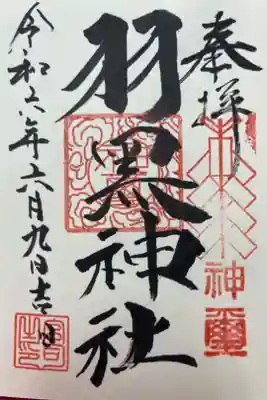 奉拝
羽黒神社
令和六年六月九日吉日
神璽